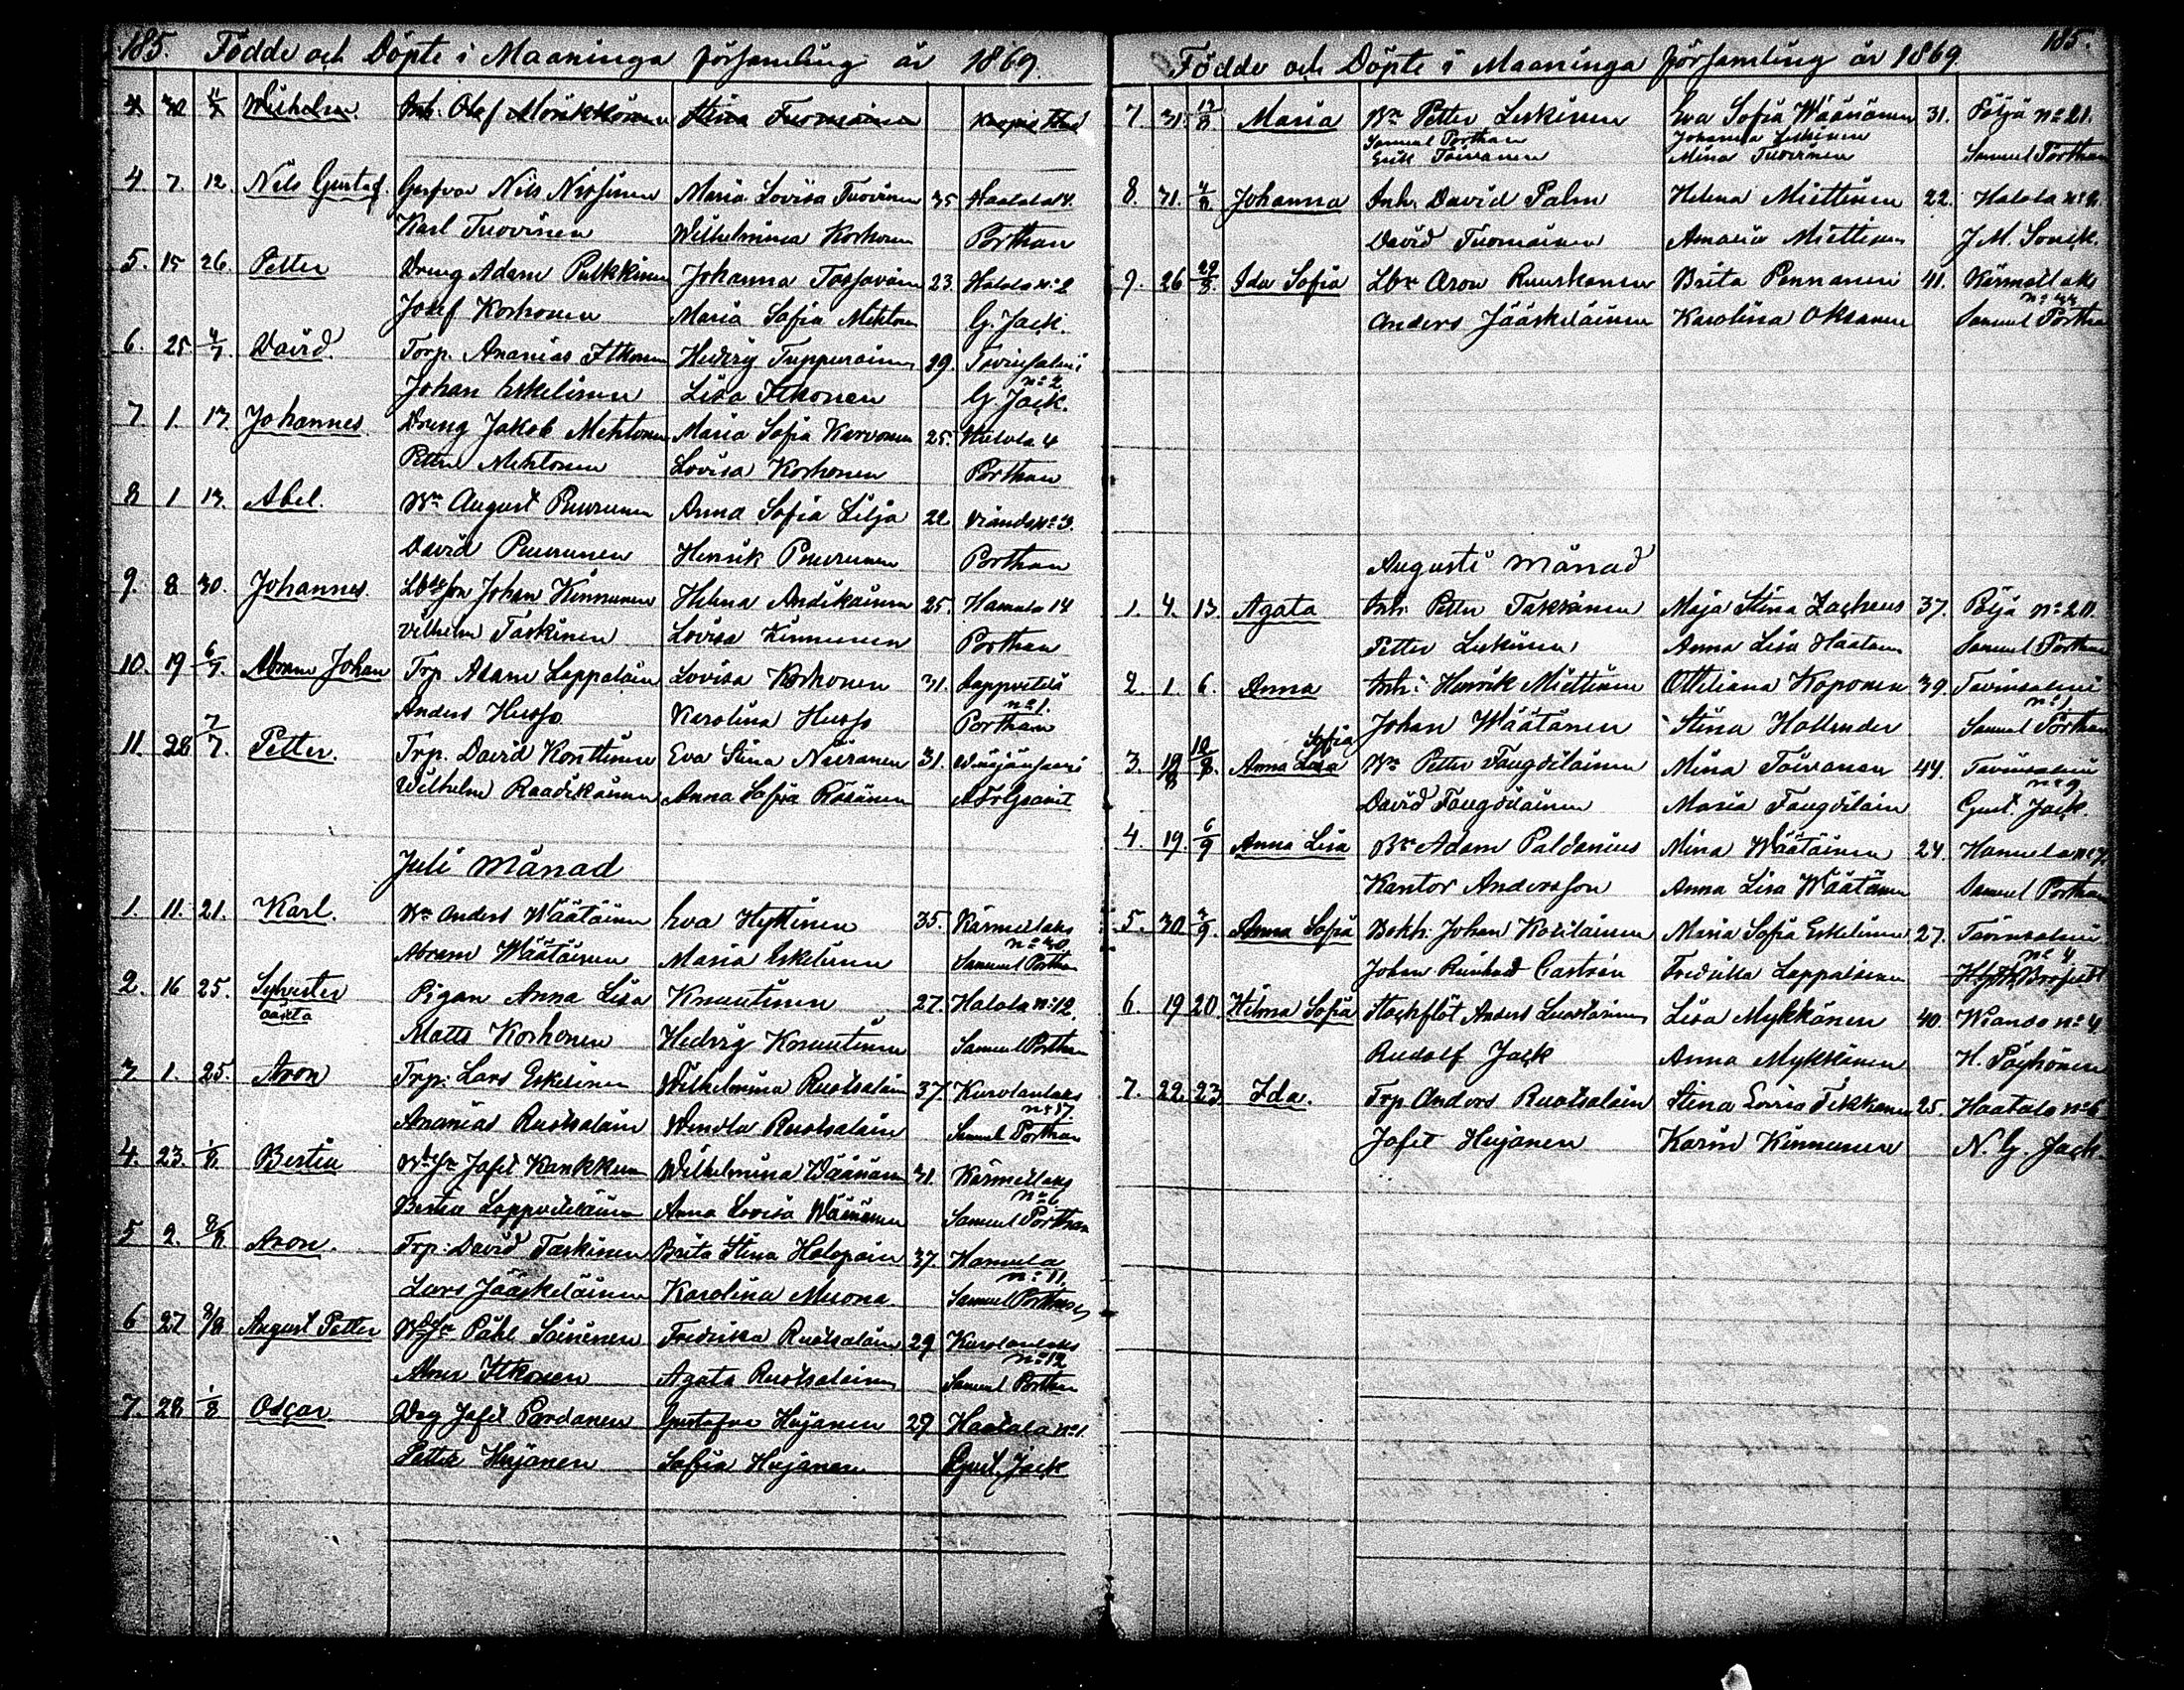 185. Födde och Döpte i Maaninga församling år 1869.
4. 30 Wilhelm. Inh. Olof Mönkkönen Stina Tuomainen Kuopio
4 7. 12. Nils Gustaf. Nils Nissinen Maria Lovisa Tuovinen 35 Haatala 14.
Karl Tuovinen Wilhelmina Korhonen Porthan
5. 15 26. Petter Dreng Adam Pulkkinen Johanna Tossavain 23. Halola No 2
Josef Korhonen Maria Sofia Mehtonen G. Jack.
6. 25 4/7 David. Torp. Ananias Itkonen Hedvig Tuppurainen 29. Tavinsalmi
No 2
Johan Eskelinen Lisa Itkonen G. Jack.
7 1. 17. Johannes. Dreng Jakob Mehtonen Maria Sofia Karvonen 25. Halola 4
Petter Mehtonen Lovisa Korhonen Porthan
8 1 17. Abel. Bn August Puurunen Anna Sofia Lilja 22. Viando No 3.
David Puurunen Henrik Puurunen Porthan
9. 8 30. Johannes. Johan Kinnunen Helena Andikainen 25. Hamula 14
Vilhelm Taskinen Lovisa Kinnunen Porthan
10. 19 6/7. Abram Johan Trp Adam Lappalain Lovisa Korhonen 31. Lappetelä
No 1.
Anders Husso Karolina Husso Porthan
11. 28 7/7. Petter. Trp. David Konttinen Eva Stina Niiranen 31.
Wilhelm Raadikainen Anna Sofia Räsänen
Juli Månad
1. 11. 21. Karl. Bn Anders Wäätäinen Eva Hyttinen 35. Kärmelaks
No 30.
Abram Wäätäinen Maria Eskelinen Samuel Porthan
2. 16 25. Sylvester Pigan Anna Lisa Knuutinen 27. Halola No 12.
oäkta
Matts Korhonen Hedvig Knuutinen Samuel Porthan
3. 1. 25. Aron Trp. Lars Eskelinen Wilhelmina Ruotsalain 37. Kurolanlaks
No 17.
Ananias Ruotsalain Wendla Ruotsalain Samuel Porthan
4. 23. 1/8. Bertta Jafet Kankkunen Wilhelmina Väänänen 31 Kärmelaks
No 6
Lappeteläinen Anna Lovisa Väänänen Samuel Porthan
5 2. 8/8 Aron. Trp. David Taskinen Brita Stina Holopain 37. Hamula
No 11.
Lars Jääskeläinen Karolina Mesona Samuel Porthan
6 27 8/8 August Petter Påhl Soininen Fredrika Ruotsalain 29 Kurolanlaks
No 12
Abner Itkonen Agata Ruotsalainen Samuel Porthan
7. 28 1/8 Oscar. Drg Jafet Pardanen Gustafva Hujanen 29 Haatala No 1.
Petter Hujanen Sofia Hujanen Gust. Jack
Födde och Döpte i Maaninga församling år 1869. 185.
7. 31. 12/8. Maria Bn Petter Leskinen Eva Sofia Wäänänen 31. Pöljä No 21.
Samuel Porthan Johanna Leskinen
Erik Toivanen Mina Tuovinen Samuel Porthan
8. 31. Johanna Inh. David Palm Helena Miettinen 22. Halola
David Tuomainen Amalia Miettinen J. M.
9. 26 29/8 Ida Sofia Lbr Aron Ruuskanen Brita Pennanen 41. Kärmelaks
Anders Jääskeläinen Karolina Oksanen Samuel Porthan
Augusti Månad
1. 4. 15. Agata Inh. Petter Takkinen Maja Stina Zacheus 37. Pöljä No 20.
Petter Leskinen Anna Lisa Haatain Samuel Porthan
2. 1. 6. Anna Inh. Henrik Miettinen Ottiliana Koponen 39. Tavinsalmi
No 1.
Johan Wäätänen Stina Hollender Samuel Porthan
Sofia
3. 19/8 Anna Lisa Bn Petter Faugdilainen Mina Toivanen 44. Tavinsalmi
No 9
David Faugdilainen Maria Faugdilain Gust. Jack.
4. 19. 6/9 Anna Lisa Bn Adam Paldanius Mina Wäätäinen 24. Hamula
Kantor Andersson Anna Lisa Wäätänen Samuel Porthan
5. 30. 3/9. Anna Sofia Bokh. Johan Kosilainen Maria Sofia Eskelinen 27. Tavinsalmi
No 4
Johan Reinhold Castrén Fredrika Lappalainen
6. 19 20. Hilma Sofia Anders Lisa Mykkänen 40. Wiando No 4
Rudolf Jack Anna Mykkänen H. Pöyhönen
7. 22. 23. Ida. Trp Anders Ruotsalain Stina Lovisa Tikkanen 25. Haatala No 6
Jafet Hujanen Karin Kinnunen N. G. Jack.